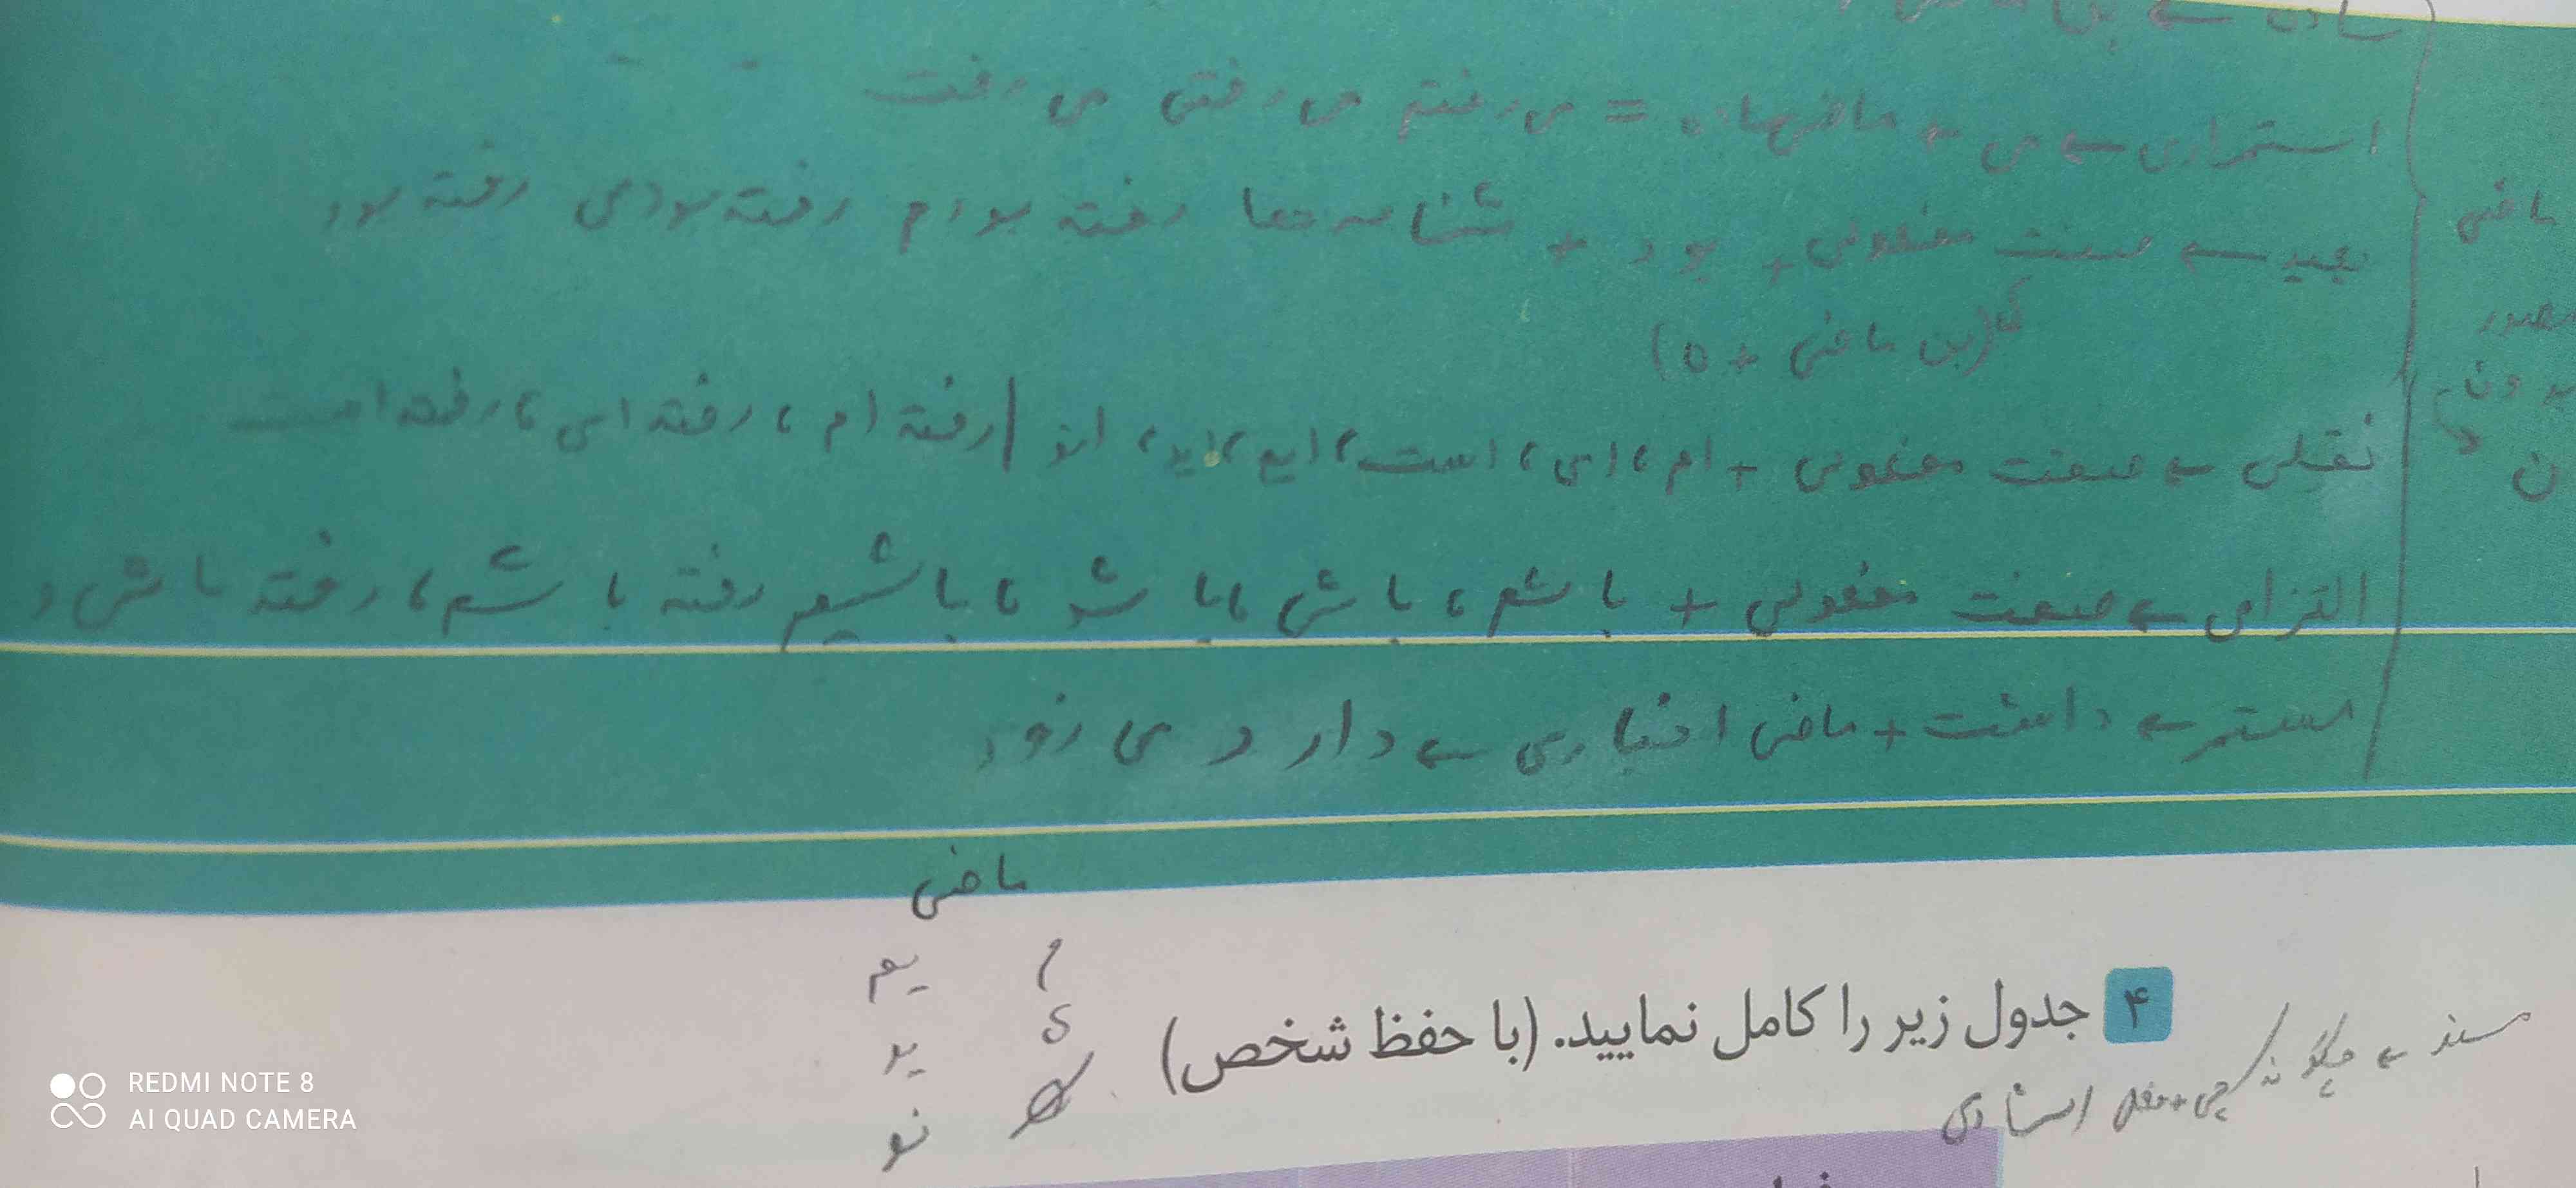 ساده ← بن
استمراری ← می + ماضی ساده = می رفتم می رفتی می رفت
بعید ← صفت مفعولی + بود + شناسه ها رفته بودم رفته بودی رفته بود
(بن ماضی + ه)
نقلی ← صفت مفعولی + ام، ای، است، ایم، اید، اند | رفته ام، رفته ای، رفته است
التزامی ← صفت مفعولی + باشم، باشی، باشد، باشیم رفته باشم، رفته باشی و
مستمر ← داشت + ماضی اخباری ← دارد می رود
ماضی
ن
ماضی
م یم
ی ید
ند
۴ جدول زیر را کامل نمایید. (با حفظ شخص)
مسند ← چگونه / چی + فعل اسنادی